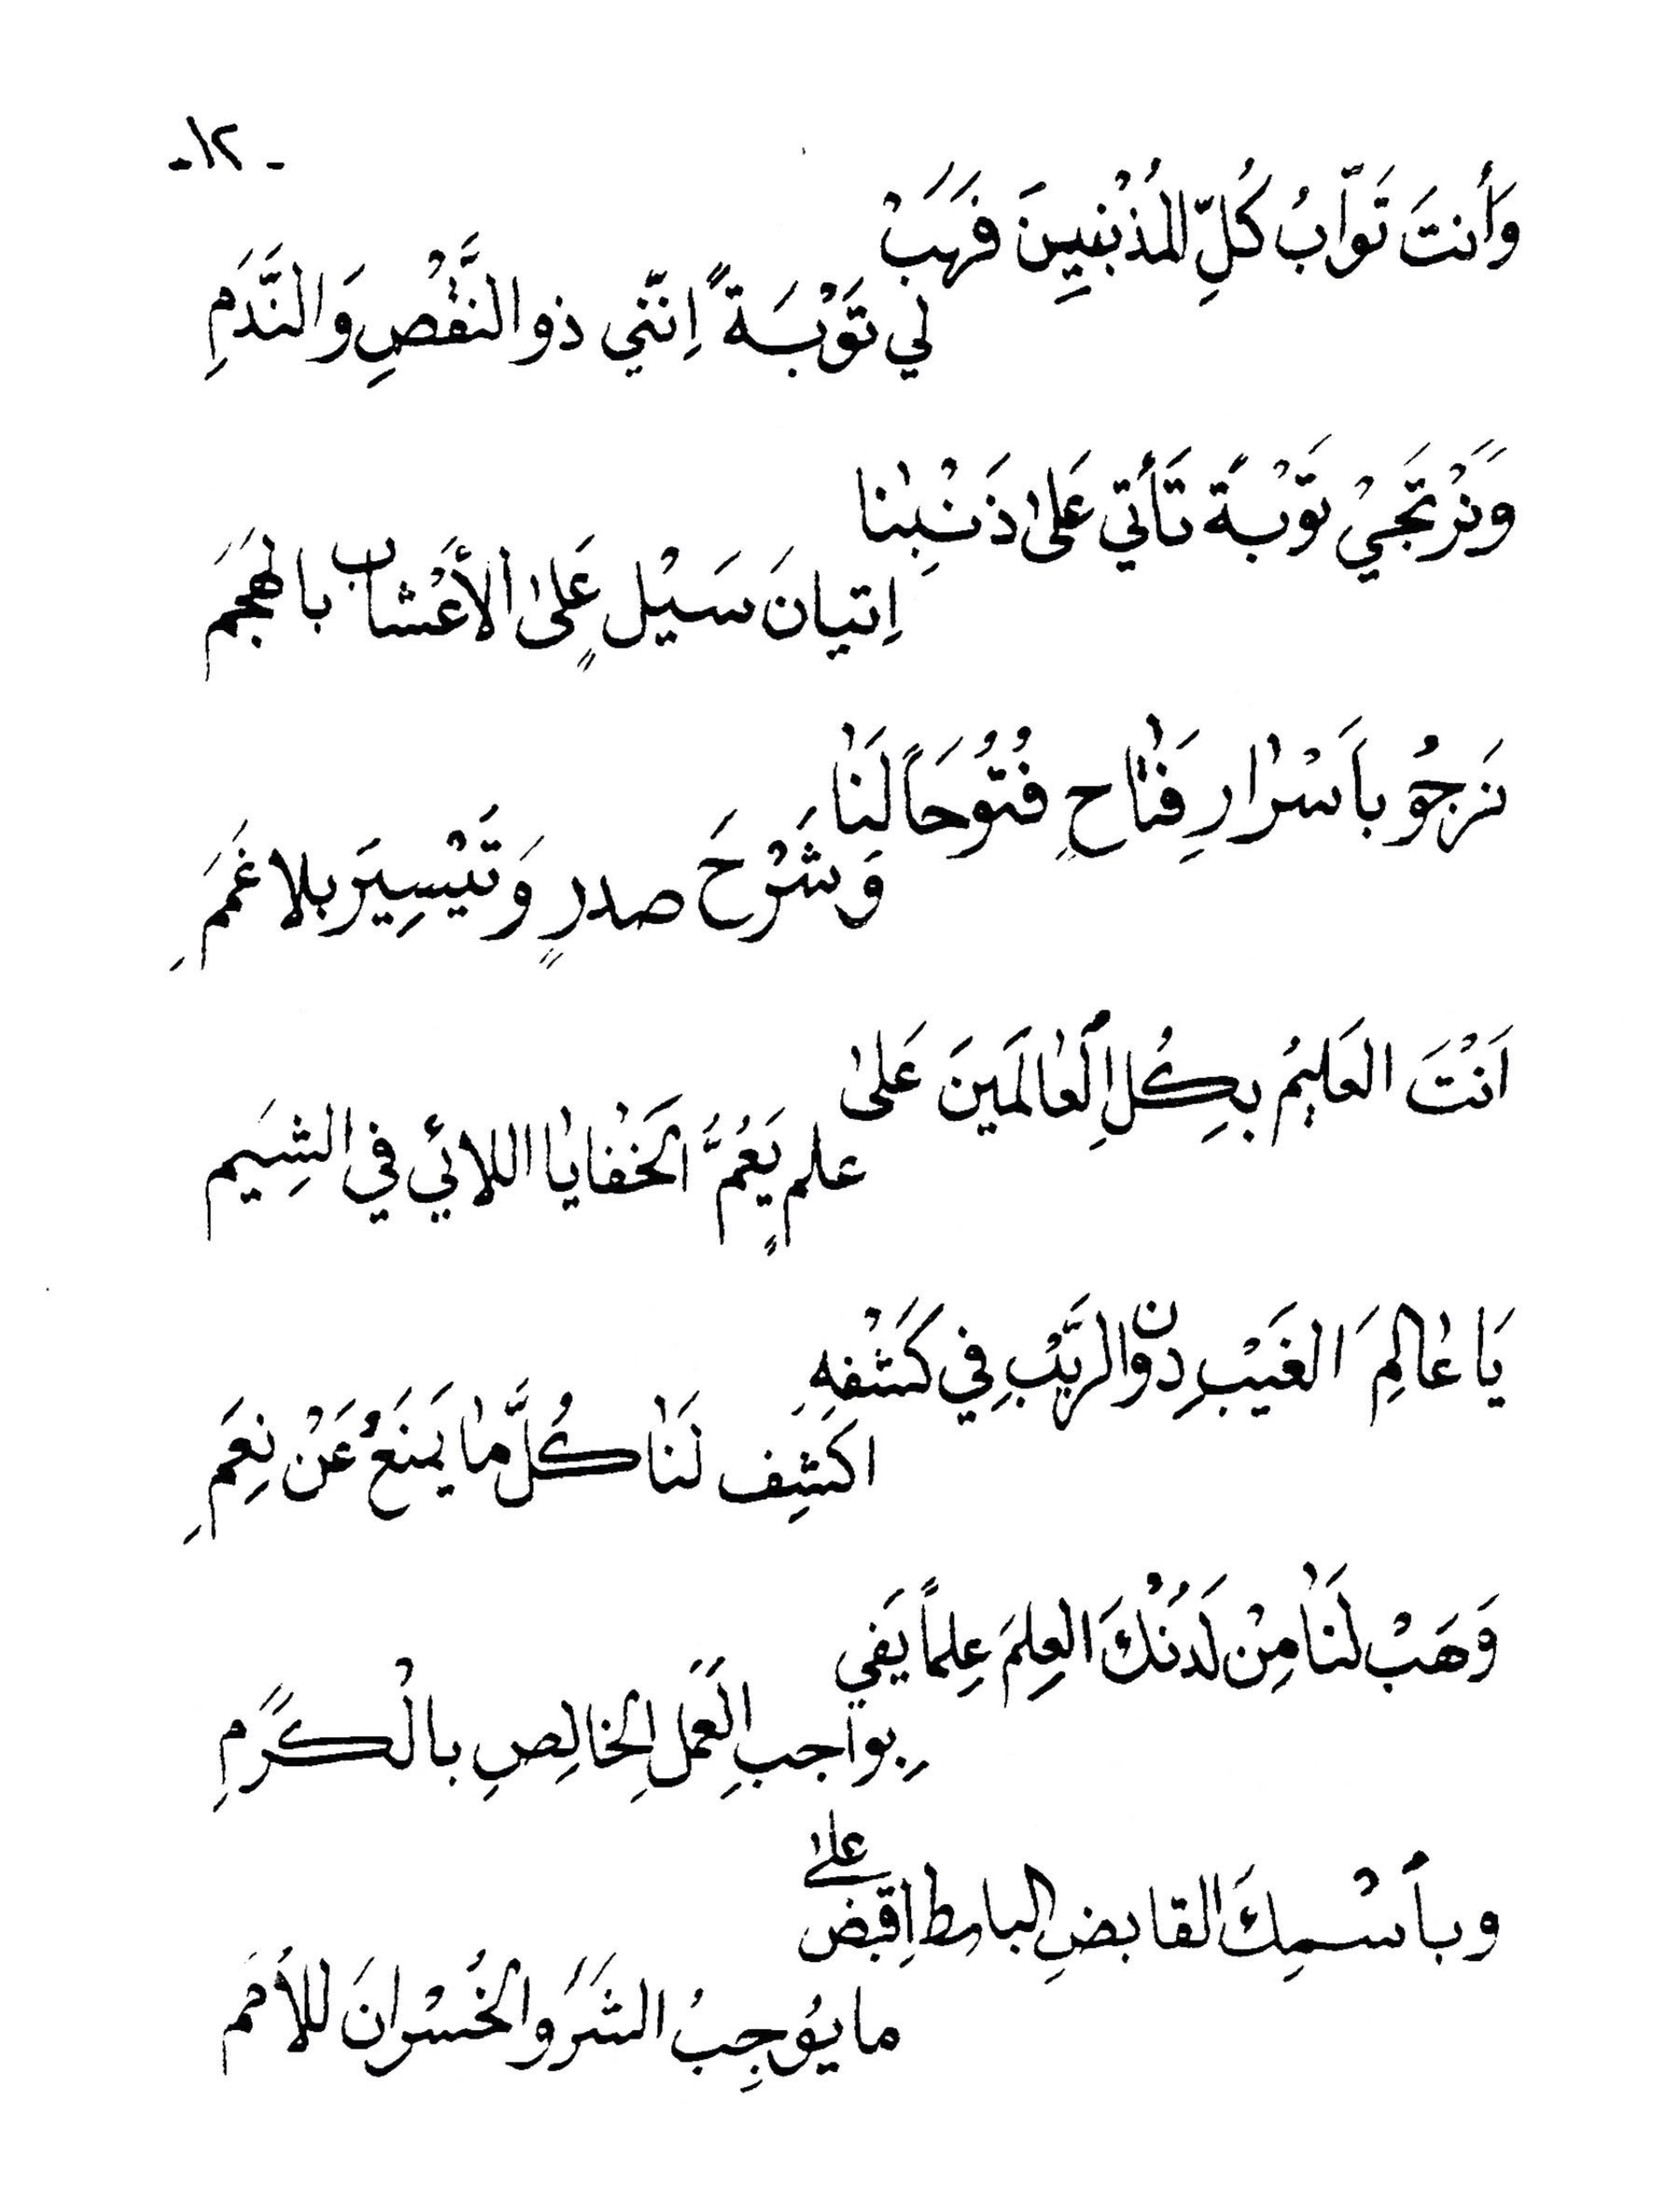 -١٢-
وَأَنتَ تَوَّابُ كُلِّ المُذْنِبِينَ فَهَبْ
لي تَوْبَةً اِنّني ذو النَّقْصِ وَالنَّدَمِ
وَنَرْتَجَيْ تَوْبَةً تَأتي عَلىٰ ذَنْبِنٰا
اِتيانَ سَيْلٍ عَلىٰ الأعْشَاب بالهَجَمَ
نَرجُوُ بأَسْرٰارِ فَتّٰاحٍ فُتُوُحَاً لَنَٰا
وَشَرْحَ صدرٍ وَتَيْسِيرَ بلا غَمَمِ
اَنْتَ العَليمُ بِكُلِ الْعٰالَمينَ عَلىٰ
علمٍ يَعُمُّ الخَفْايٰا اللائي في الشِيَم
يَا عٰالِمَ الغَيْبِ دون الرَّيْبِ في كَشْفِهِ
اكَشِف لَنَٰا كُلَّ مٰا يَمنَعُ عَنْ نِعَمِ
وَهَبْ لَنَٰا مِنْ لَدُنْكَ العِلمَ عِلماً يَفي
بِواجبِ العَمَلِ الخالِصِ بالْكَرَمِ
وبأسْمِكَ القابضِ الباسِط اِقبض علىٰ
ما يوُجِبُ الشَرَ والخُسْرانَ للأمَم